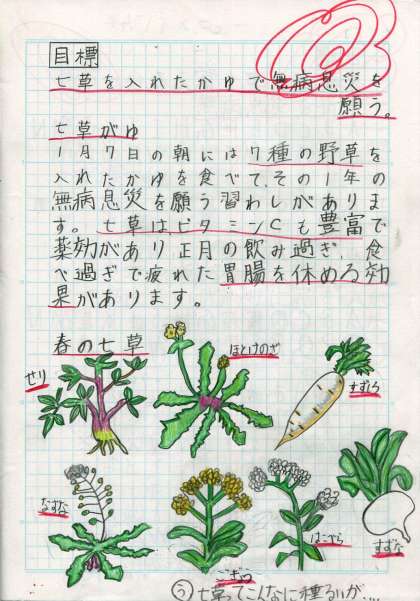 目標
七草を入れたかゆで無病息災を
願う。
七草がゆ
1月7日の朝には7種の野草を
入れたかゆを食べて、その1年の
無病息災を願う習わしがありま
す。七草は、ビタミンCも豊富で
薬効があり、正月の飲み過ぎ、食
べ過ぎで疲れた胃腸を休める効
果があります。
春の七草
せり
ほとけのざ
すずしろ
なずな
ごぎょう
はこべら
すずな
う 七草ってこんなに種るいが...